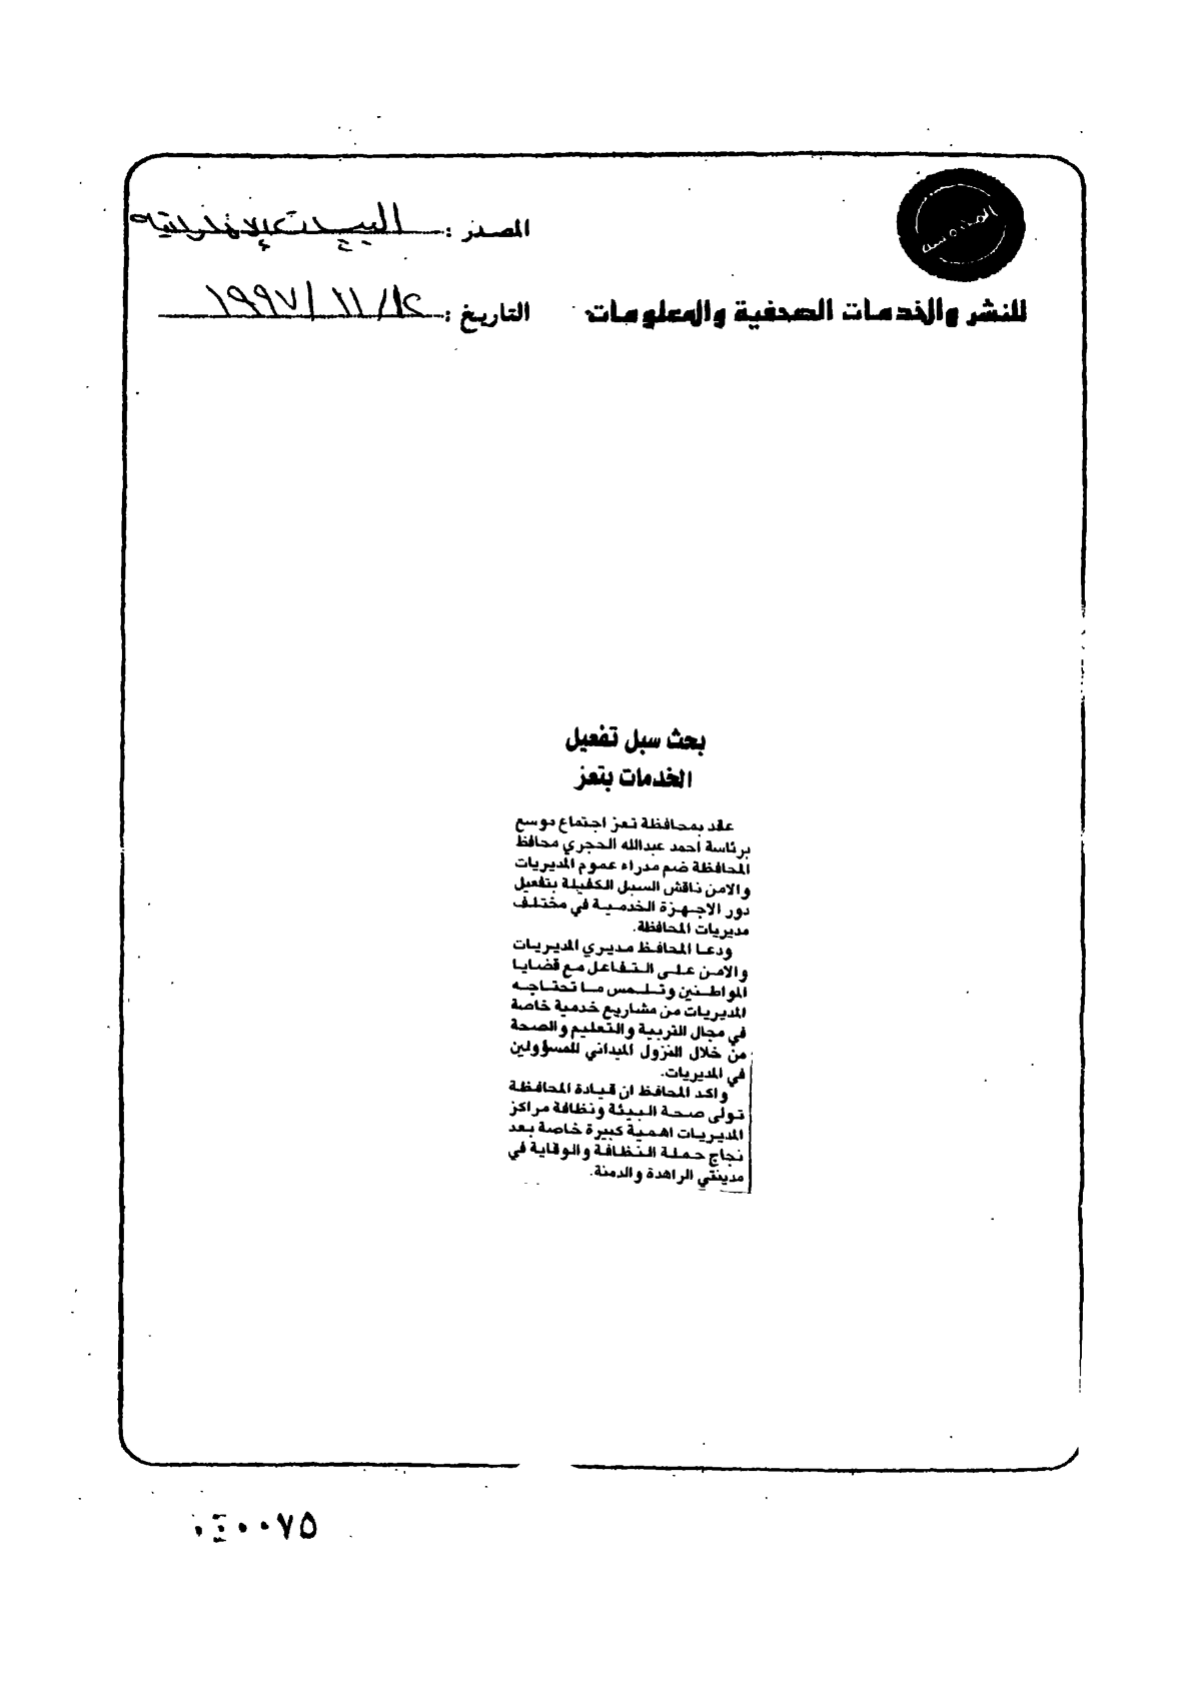 المصدر :
للنشر والخدمات الصحفية والمعلومات
التاريخ : ١٢ / ١١ / ١٩٩٧
بحث سبل تفعيل
الخدمات بتعز
عقد بمحافظة تعز اجتماع موسع
برئاسة احمد عبدالله الحجري محافظ
المحافظة ضم مدراء عموم المديريات
والامن ناقش السبل الكفيلة بتفعيل
دور الاجهزة الخدمية في مختلف
مديريات المحافظة.
ودعا المحافظ مديري المديريات
والامن على التفاعل مع قضايا
المواطنين وتلمس ما تحتاجه
المديريات من مشاريع خدمية خاصة
في مجال التربية والتعليم والصحة
من خلال النزول الميداني للمسؤولين
في المديريات.
واكد المحافظ ان قيادة المحافظة
تولى صحة البيئة ونظافة مراكز
المديريات اهمية كبيرة خاصة بعد
نجاح حملة النظافة والوقاية في
مدينتي الراهدة والدمنة.